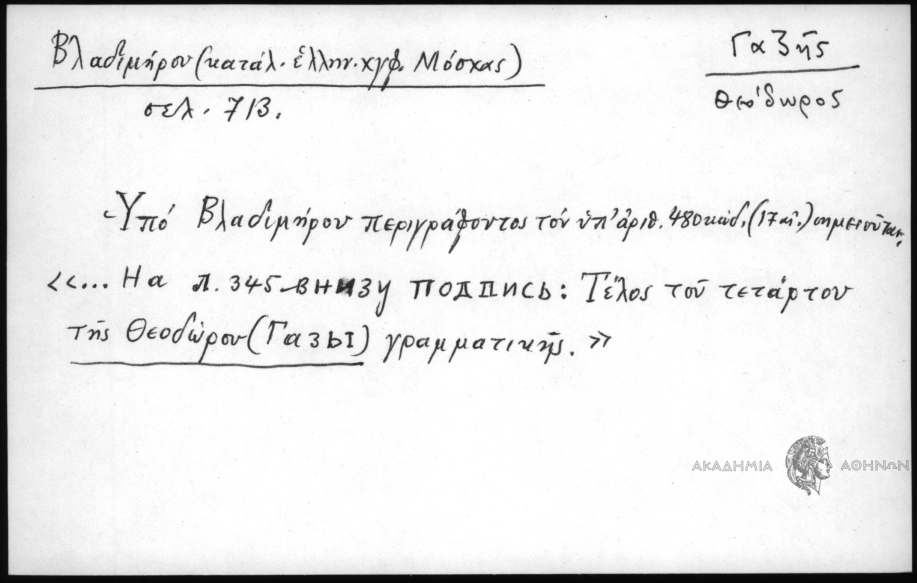 Βλαδιμήρου (κατάλ. ἑλλην. χγφ. Μόσχας)
σελ. 713.
Γαζῆς
Θεόδωρος
Ὑπό Βλαδιμήρου περιγράφοντος τόν ὑπ' ἀριθ. 480 κώδ. (17 αἰ.) σημειοῦται,
<<... На л. 345 внизу подпись: Τέλος τοῦ τετάρτου
τῆς Θεοδώρου (Газы) γραμματικῆς. >>
ΑΚΑΔΗΜΙΑ ΑΘΗΝΩΝ